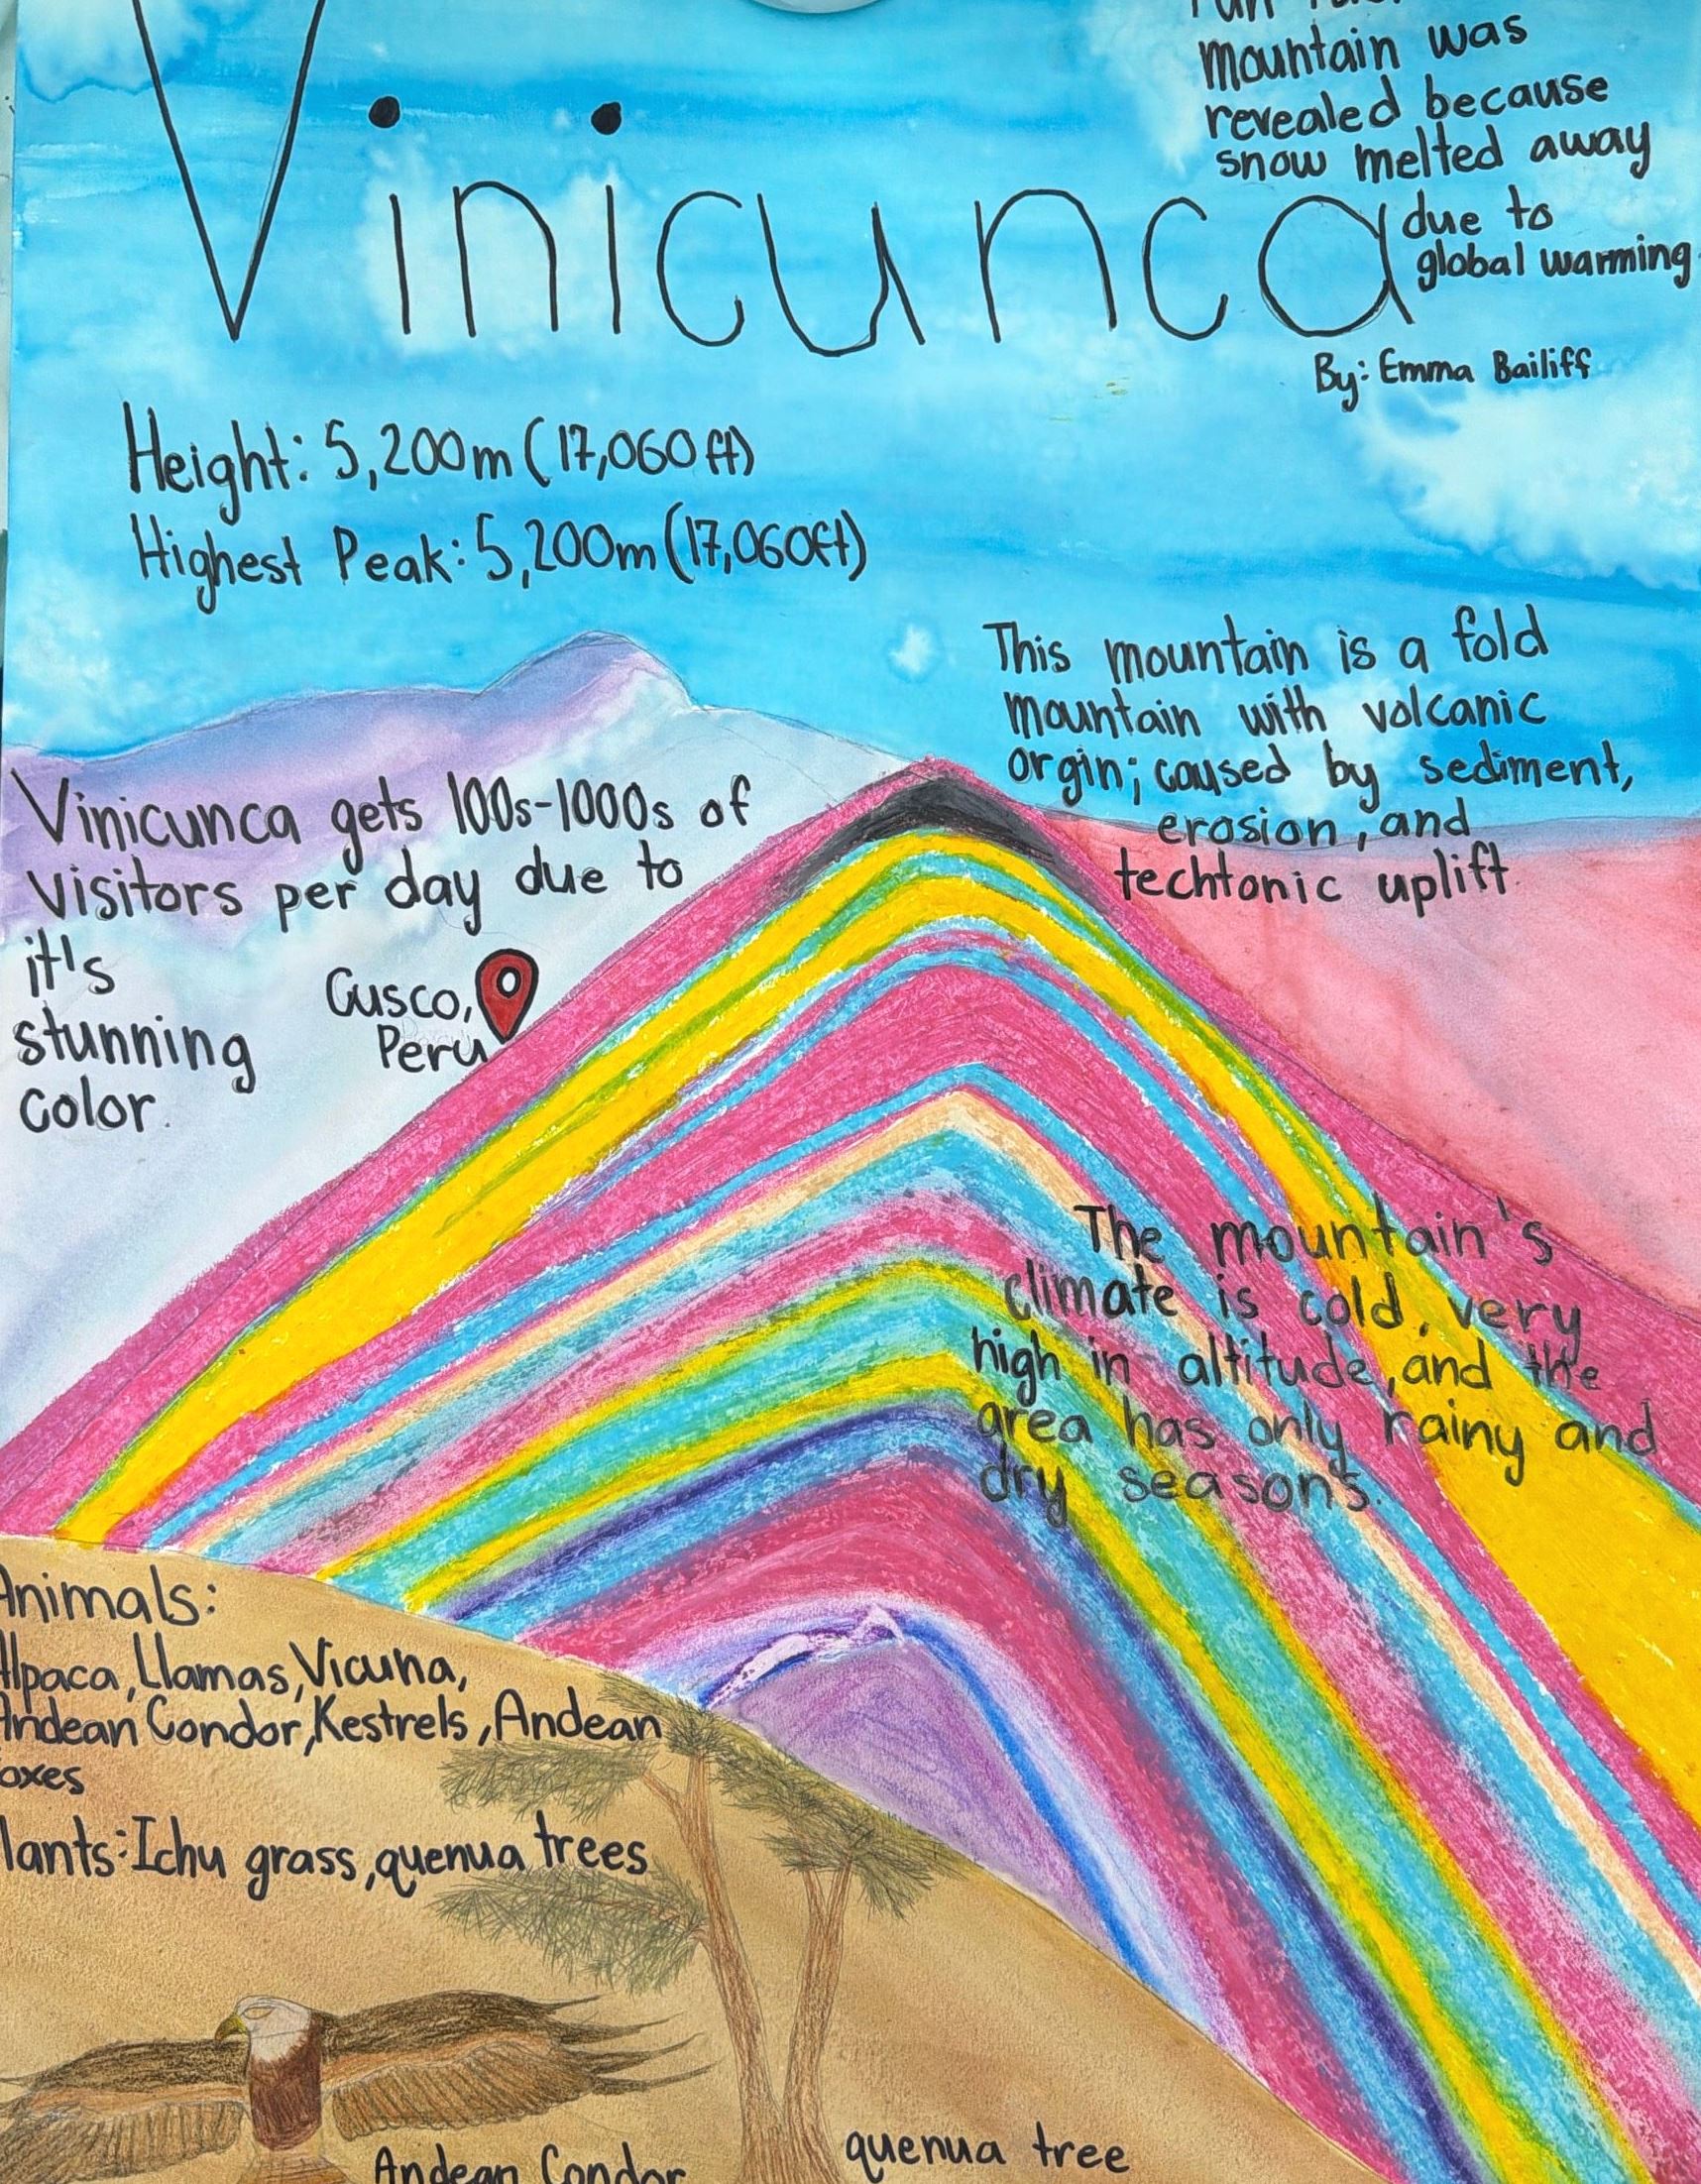 mountain was
revealed because
snow melted away
due to
global warming
Vinicunca
By: Emma Bailiff
Height: 5,200m (17,060ft)
Highest Peak: 5,200m (17,060ft)
This mountain is a fold
mountain with volcanic
orgin; caused by sediment,
erosion, and
techtonic uplift.
Vinicunca gets 100s-1000s of
visitors per day due to
it's
stunning
color.
Cusco,
Peru
The mountain's
climate is cold, very
high in altitude, and the
area has only rainy and
dry seasons.
Animals:
Alpaca, Llamas, Vicuna,
Andean Condor, Kestrels, Andean
oxes
lants: Ichu grass, quenua trees
Andean Condor
quenua tree